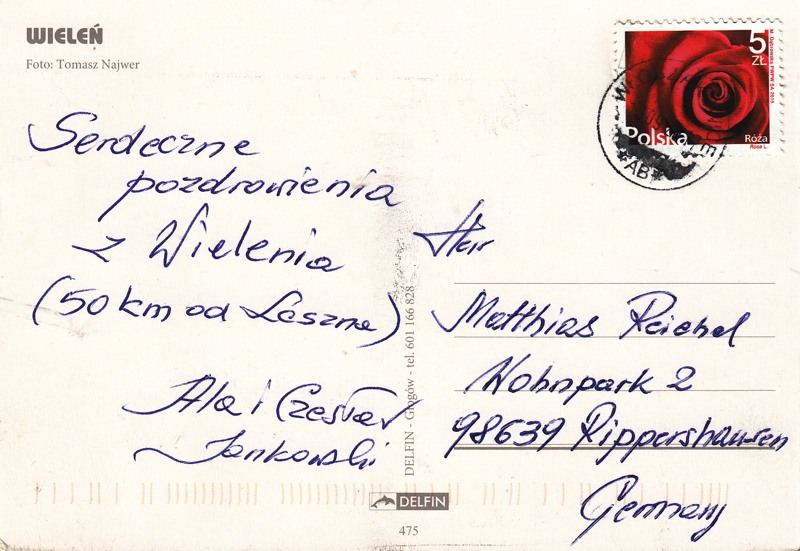 WIELEŃ
Foto: Tomasz Najwer
Serdeczne
pozdrowienia
z Wielenia
(50 km od Leszna)
Ala i Czesław
Jankowski
5
ZŁ
Polska
Róża
Rosa L.
Herr
Matthias Reichel
Wohnpark 2
98639 Rippershausen
Germany
DELFIN - Głogów - tel. 601 166 828
DELFIN
475